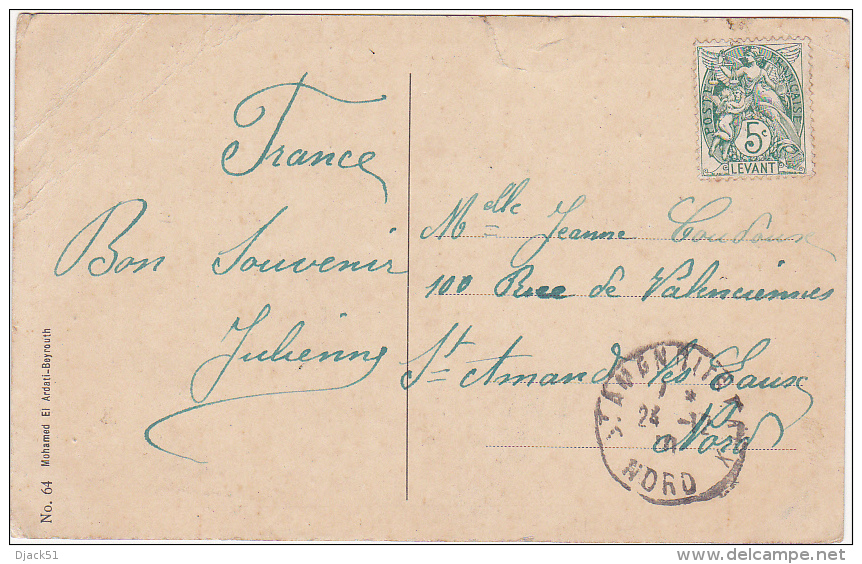 France
Bon Souvenir
Julienne
No. 64 Mohamed El Ardati-Beyrouth
POSTE FRANÇAISE
5c
LEVANT
Melle Jeanne
100 Rue de Valenciennes
St Amand les Eaux
Nord
ST AMAND
23 -12
NORD
Djack51
delcampe.net